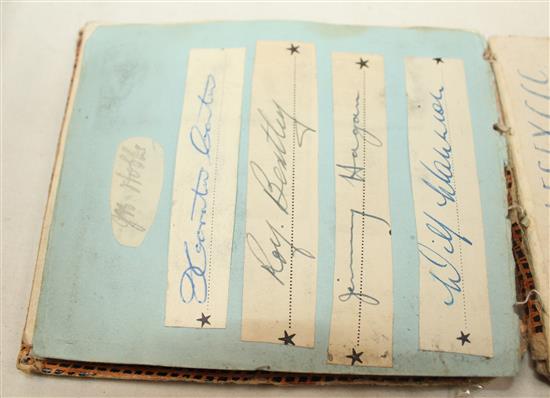 J B Hobbs
Horatio Carter
Roy Bentley
Jimmy Hagan
Wilf Mannion